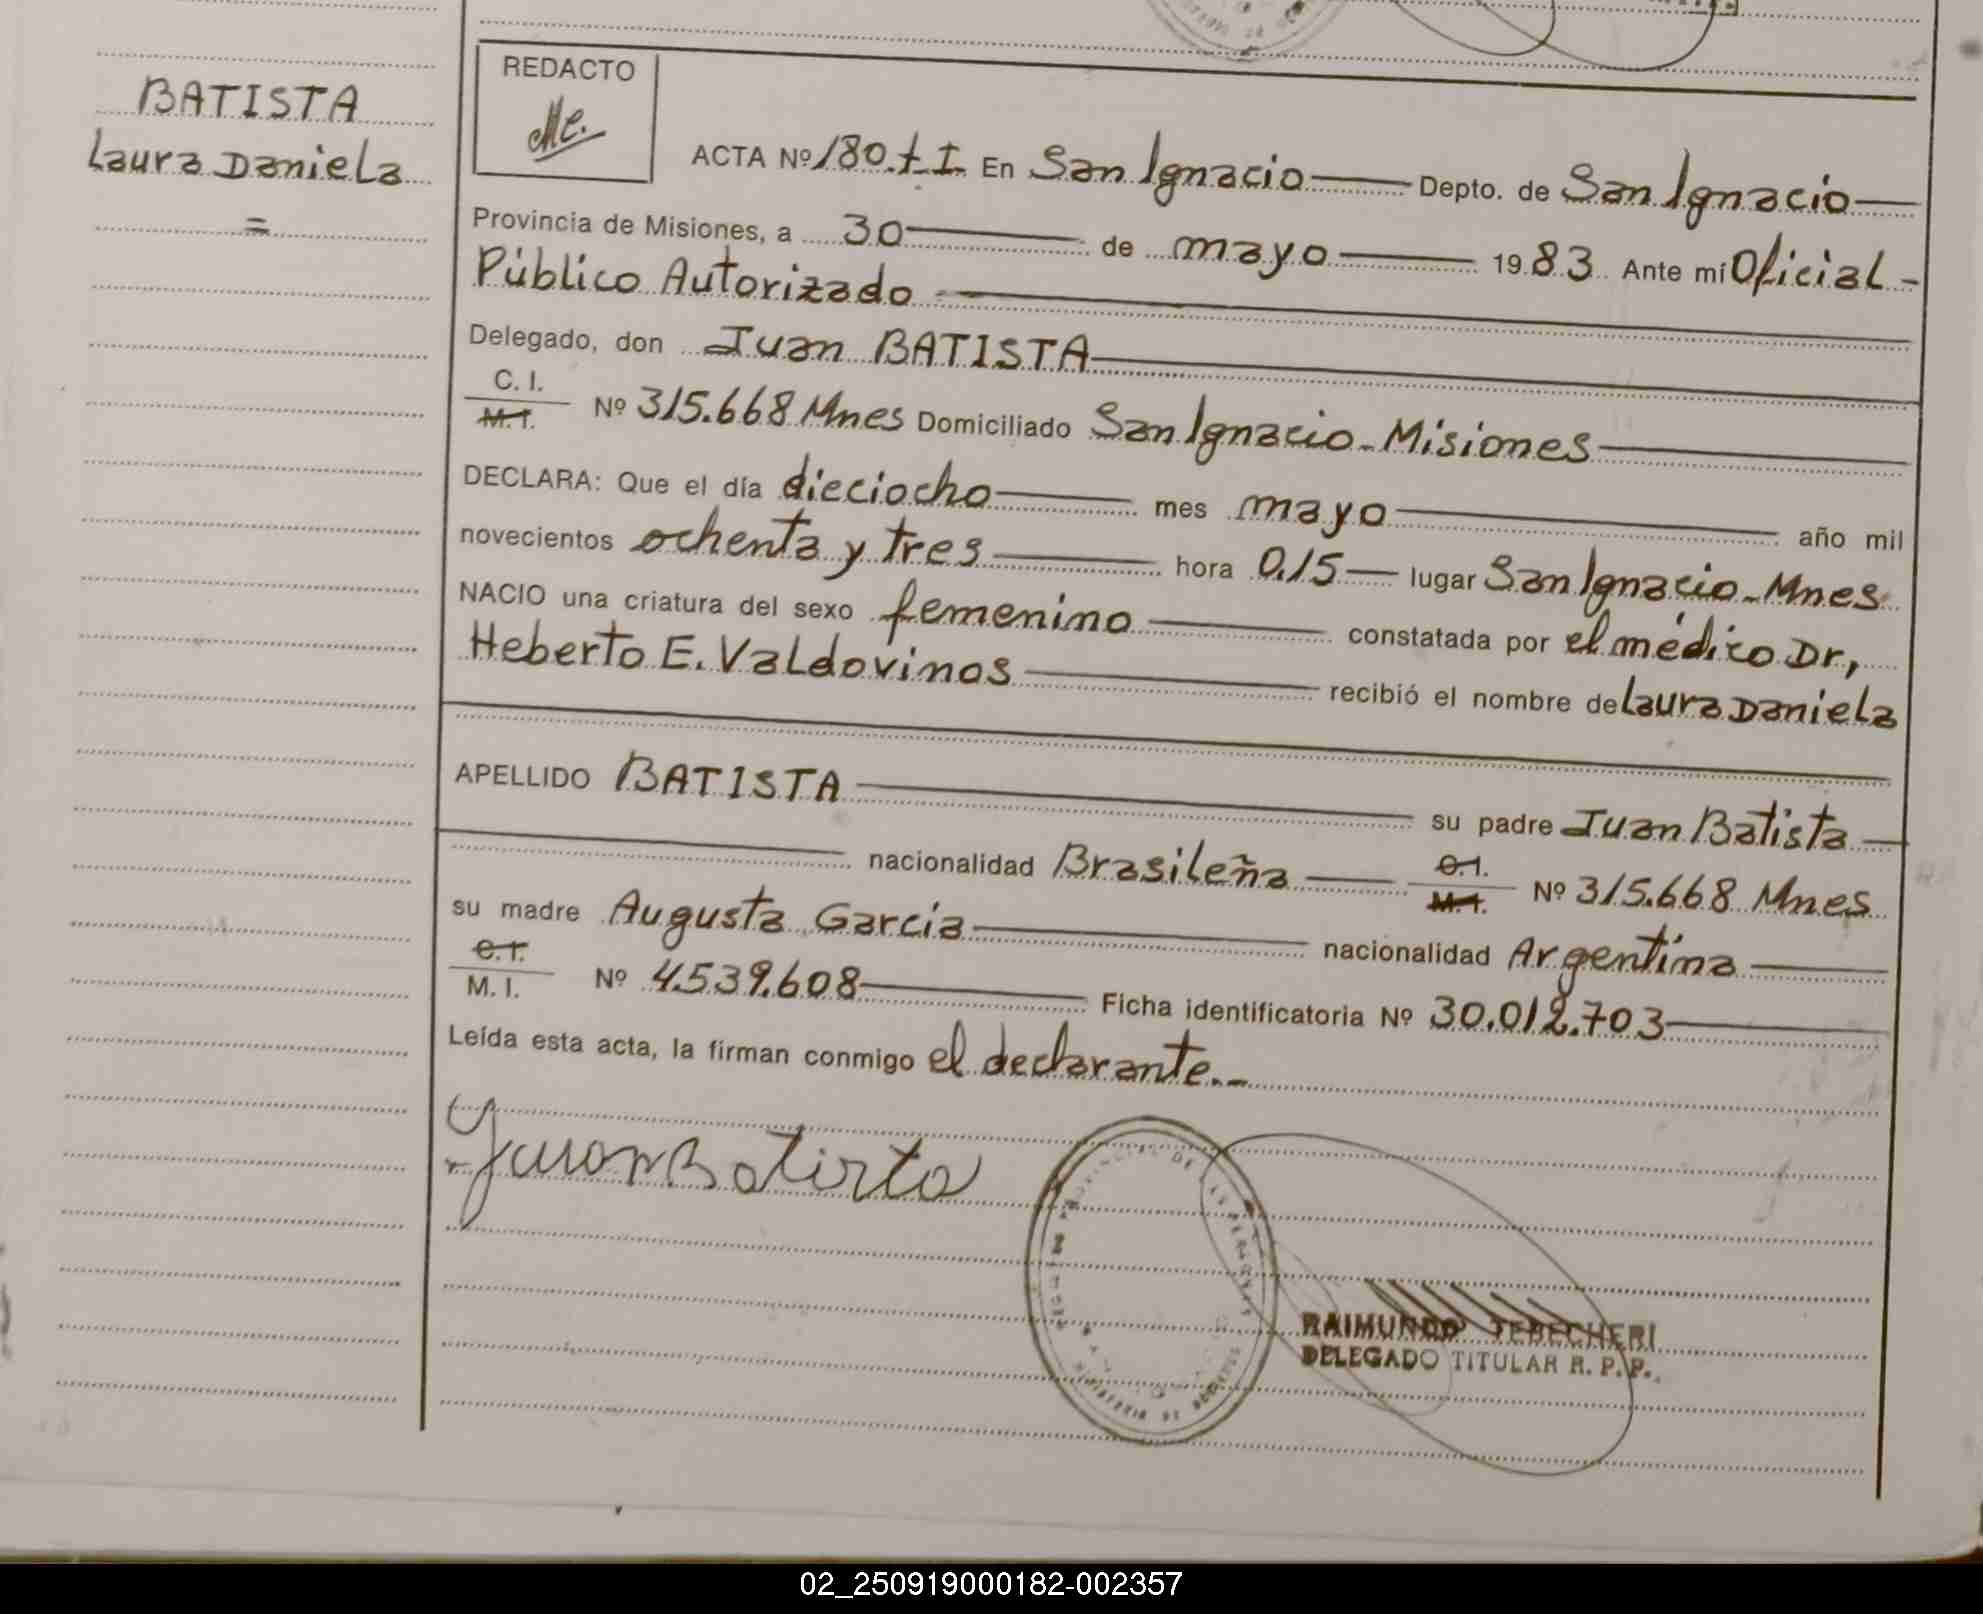 BATISTA
Laura Daniela
=
REDACTO
ACTA Nº 180.t I. En San Ignacio Depto. de San Ignacio
Provincia de Misiones, a 30 de mayo 1983 Ante mí Oficial
Público Autorizado
Delegado, don Juan BATISTA
C. I.
M. I. Nº 315.668 Mnes Domiciliado San Ignacio - Misiones
DECLARA: Que el día dieciocho mes mayo año mil
novecientos ochenta y tres hora 0.15 lugar San Ignacio - Mnes
NACIO una criatura del sexo femenino constatada por el médico Dr,
Heberto E. Valdovinos recibió el nombre de Laura Daniela
APELLIDO BATISTA su padre Juan Batista
nacionalidad Brasileña C. I.
M. I. Nº 315.668 Mnes
su madre Augusta Garcia nacionalidad Argentina
C. I.
M. I. Nº 4.539.608 Ficha identificatoria Nº 30.012.703
Leída esta acta, la firman conmigo el declarante.-
Juan Batista
RAIMUNDO TEBECHERI
DELEGADO TITULAR R. P. P.
02_250919000182-002357